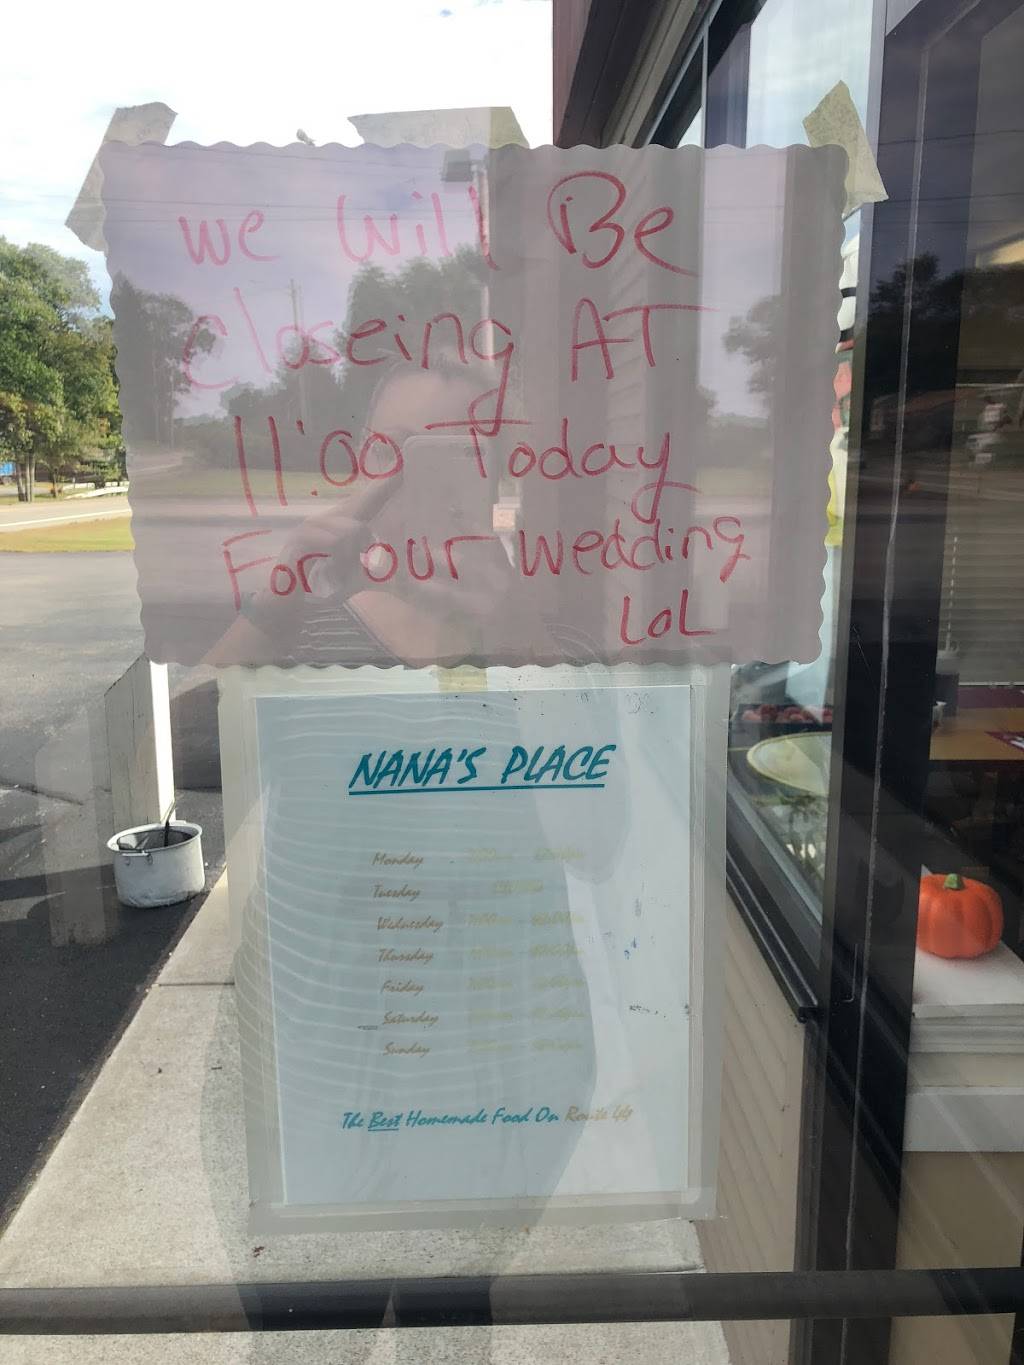 we will Be
closeing AT
11:00 Today
For our wedding
LOL
NANA'S PLACE
Monday
Tuesday
Wednesday
Thursday
Friday
Saturday
Sunday
The Best Homemade Food On Route 44